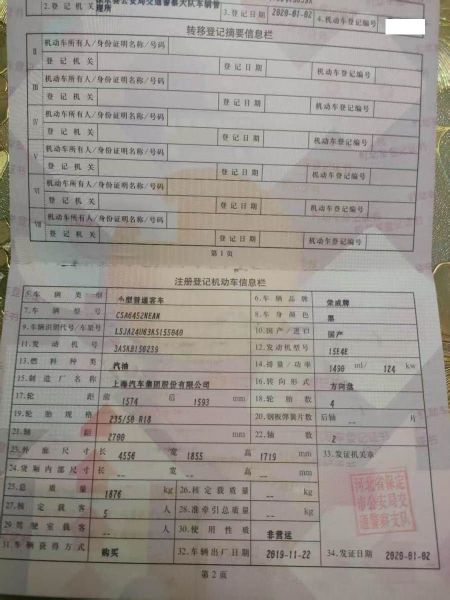 2.登记机关 公安局交通警察大队车辆管理所 3.登记日期 2020-01-02 4.机动车登记编号
转移登记摘要信息栏
II 机动车所有人/身份证明名称/号码
登记机关 登记日期 机动车登记编号
III 机动车所有人/身份证明名称/号码
登记机关 登记日期 机动车登记编号
IV 机动车所有人/身份证明名称/号码
登记机关 登记日期 机动车登记编号
V 机动车所有人/身份证明名称/号码
登记机关 登记日期 机动车登记编号
VI 机动车所有人/身份证明名称/号码
登记机关 登记日期 机动车登记编号
VII 机动车所有人/身份证明名称/号码
登记机关 登记日期 机动车登记编号
第1页
注册登记机动车信息栏
5.车辆类型 小型普通客车 6.车辆品牌 荣威牌
7.车辆型号 CSA6452NEAN 8.车身颜色 黑
9.车辆识别代号/车架号 LSJA24U63KS155040 10.国产/进口 国产
11.发动机号 3A5KB150239 12.发动机型号 15E4E
13.燃料种类 汽油 14.排量/功率 1490 ml/ 124 kw
15.制造厂名称 上海汽车集团股份有限公司 16.转向形式 方向盘
17.轮距 前 1574 后 1593 mm 18.轮胎数 4
19.轮胎规格 235/50 R18 20.钢板弹簧片数 后轴 -- 片
21.轴距 2700 mm 22.轴数 2
23.外廓尺寸 长 4550 宽 1855 高 1719 mm 33.发证机关章
24.货厢内部尺寸 长 -- 宽 -- 高 -- mm
25.总质量 1876 kg 26.核定载质量 -- kg
27.核定载客 5 人 28.准牵引总质量 -- kg
29.驾驶室载客 -- 人 30.使用性质 非营运
31.车辆获得方式 购买 32.车辆出厂日期 2019-11-22 34.发证日期 2020-01-02
河北省保定
市公安局交
通警察支队
第2页